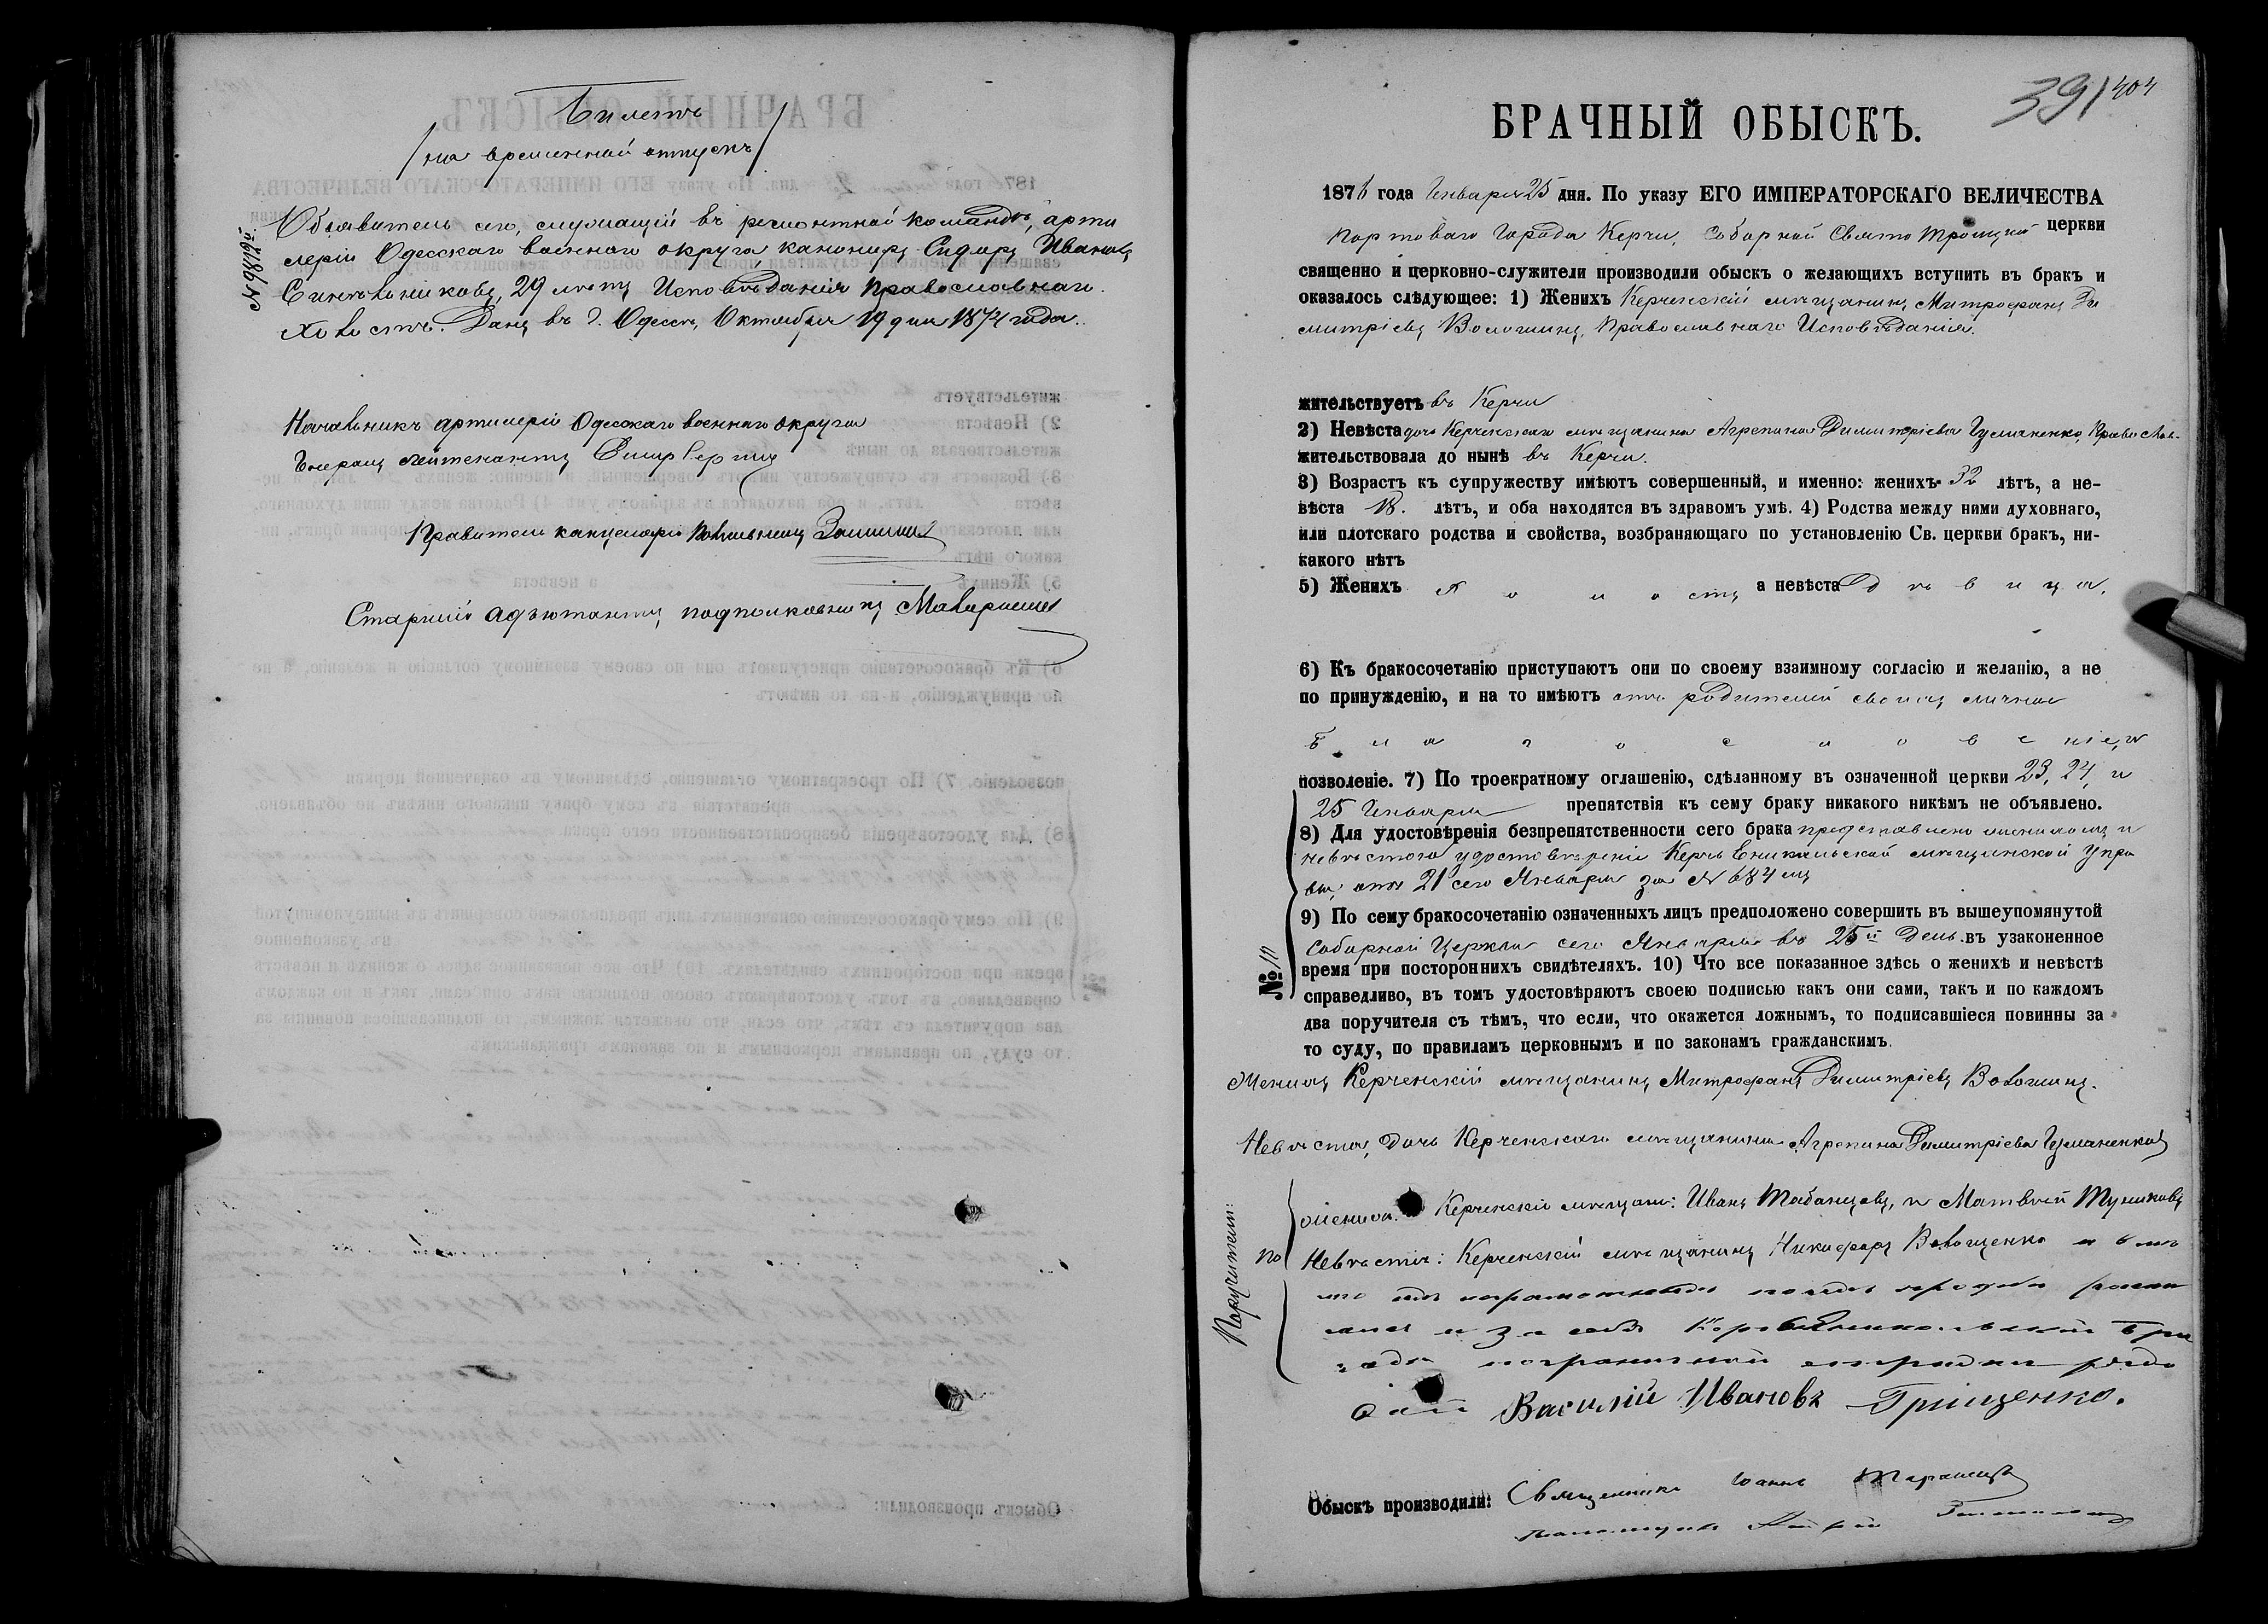 Билетъ
/на временный отпускъ/
№ 9819й.
Объявитель сего, служащій въ ремонтной командѣ, арти
леріи Одесскаго военнаго округа, канониръ Сидоръ Ивановъ
Синельниковъ, 29 лѣтъ Исповѣданія Православнаго.
Холостъ. Данъ въ г. Одессѣ, Октября 19 дня 1874 года.
Начальникъ артилеріи Одесскаго военнаго округа
Генералъ лейтенантъ
Правитель канцеляріи Полковникъ
Старшій адъютантъ, подполковникъ
391 404
БРАЧНЫЙ ОБЫСКЪ.
1876 года Января 25 дня. По указу ЕГО ИМПЕРАТОРСКАГО ВЕЛИЧЕСТВА
Портоваго Города Керчи, Соборной Свято Троицкой церкви
священно и церковно-служители производили обыскъ о желающихъ вступить въ бракъ и
оказалось слѣдующее: 1) Женихъ Керченскій мѣщанинъ Митрофанъ Ди
митріевъ Волошинъ, Православнаго Исповѣданія.
жительствуетъ въ Керчи
2) Невѣста дочь Керченскаго мѣщанина Агрепина Димитріева Гуманенко, Православ.
жительствовала до нынѣ въ Керчи.
3) Возрастъ къ супружеству имѣютъ совершенный, и именно: женихъ 32 лѣтъ, а не-
вѣста 18. лѣтъ, и оба находятся въ здравомъ умѣ. 4) Родства между ними духовнаго,
или плотскаго родства и свойства, возбраняющаго по установленію Св. церкви бракъ, ни-
какого нѣтъ
5) Женихъ холостъ а невѣста Дѣвица,
6) Къ бракосочетанію приступаютъ они по своему взаимному согласію и желанію, а не
по принужденію, и на то имѣютъ отъ родителей своихъ личное
Благословеніе, и
позволеніе. 7) По троекратному оглашенію, сдѣланному въ означенной церкви 23, 24, и
25 Января препятствія къ сему браку никакого никѣмъ не объявлено.
8) Для удостовѣренія безпрепятственности сего брака представлено женихомъ и
невѣстою удостовѣреніе Керчь Еникальской мѣщанской Упра
вы, отъ 21 сего Января за № 684 мъ
9) По сему бракосочетанію означенныхъ лицъ предположено совершить въ вышеупомянутой
Соборной Церкви сего Января въ 25й День. въ узаконенное
время при постороннихъ свидѣтеляхъ. 10) Что все показанное здѣсь о женихѣ и невѣстѣ
справедливо, въ томъ удостовѣряютъ своею подписью какъ они сами, такъ и по каждомъ
два поручителя съ тѣмъ, что если, что окажется ложнымъ, то подписавшіеся повинны за
то суду, по правиламъ церковнымъ и по законамъ гражданскимъ.
№
Женихъ Керченскій мѣщанинъ Митрофанъ Димитріевъ Волошинъ.
Невѣста, Дочь Керченскаго мѣщанина Агрепина Димитріева Гуманенкова
Поручители:
по
женихѣ: Керченскіе мѣщане: Иванъ Табанцевъ, и Матвѣй
Невѣстѣ: Керченскій мѣщанинъ Никифоръ Волощенко а
и за себя Керчь Еникольской Бри
гады пограничной стражи рядо
вой Василій Ивановъ Грищенко.
Обыскъ производили: Священникъ Іоаннъ